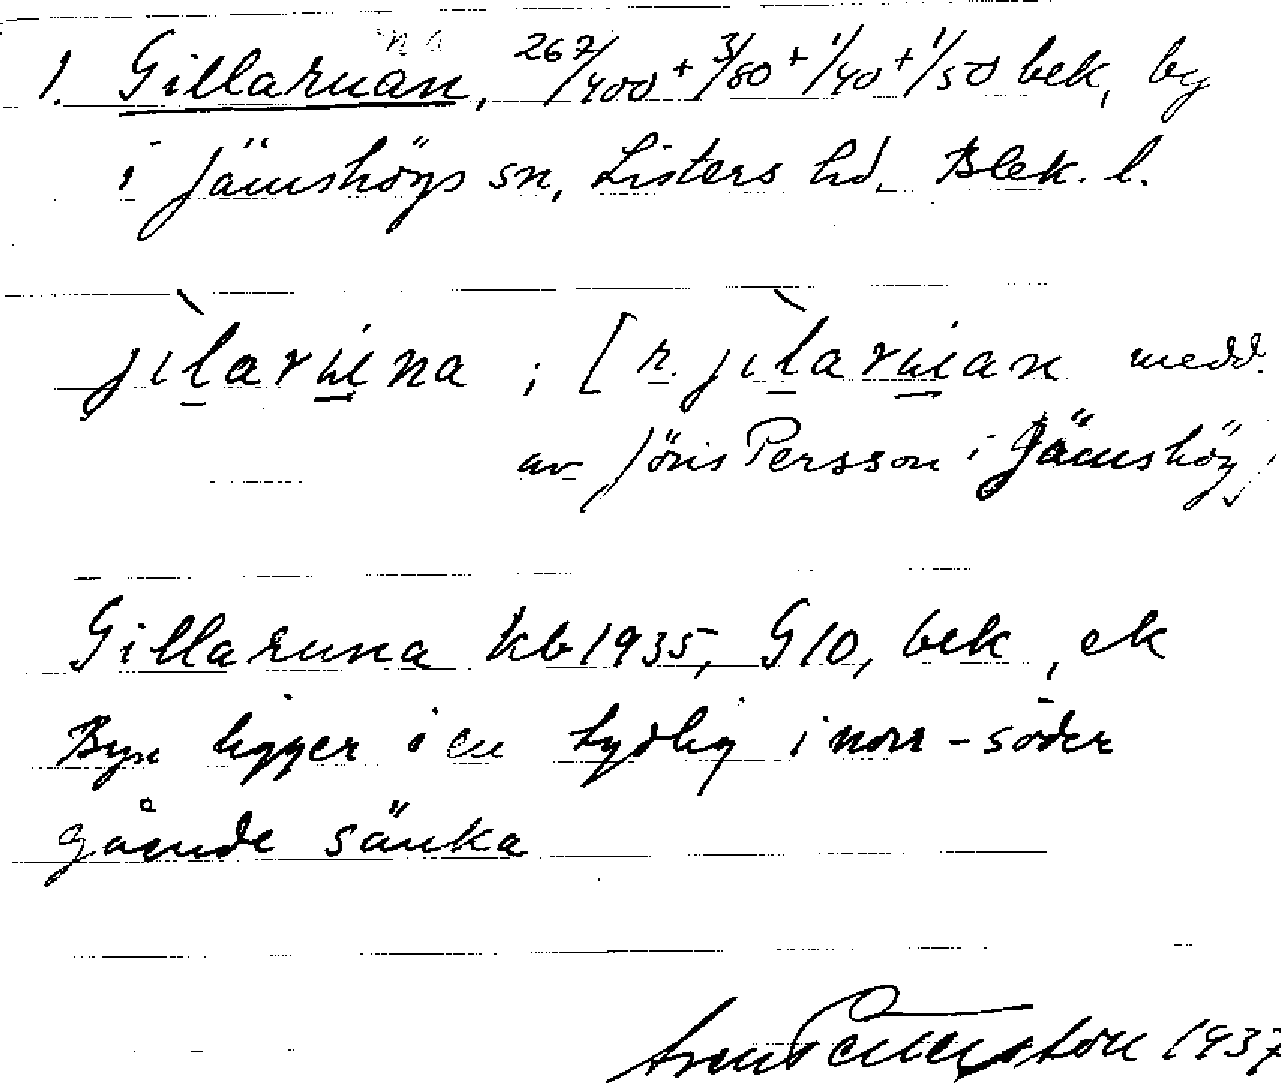 na
1. Gillaruan, 267/400 + 3/80 + 1/40 + 1/50 bek, by
i Jämshögs sn, Listers hd. Blek. l.
jìlaruna ; [r. jìlaruan medd.
av Jöns Persson i Jämshög
Gillaruna kb 1935, G10, bek, ek
Byn ligger i en tydlig i norr-söder
gående sänka
1937